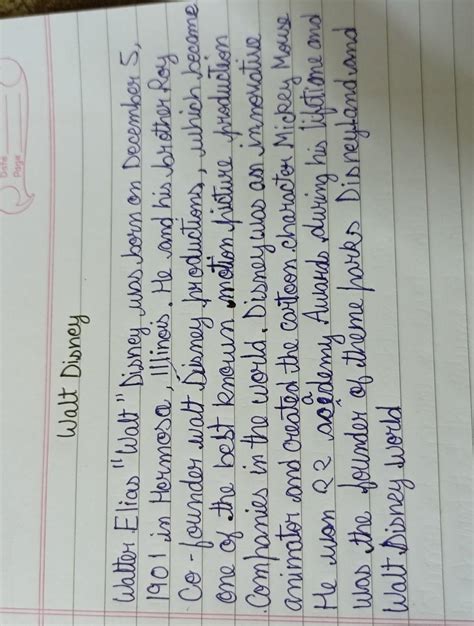 Date
Page
Walt Disney
Walter Elias "Walt" Disney was born on December 5,
1901 in Hermosa, Illinois. He and his brother Roy
Co-founder walt Disney productions, which become
one of the best known motion picture production
Companies in the world. Disney was an innovative
animator and created the cartoon character Mickey Mouse
He won 22 academy Awards during his lifetime and
was the founder of theme parks Disneyland and
Walt Disney world